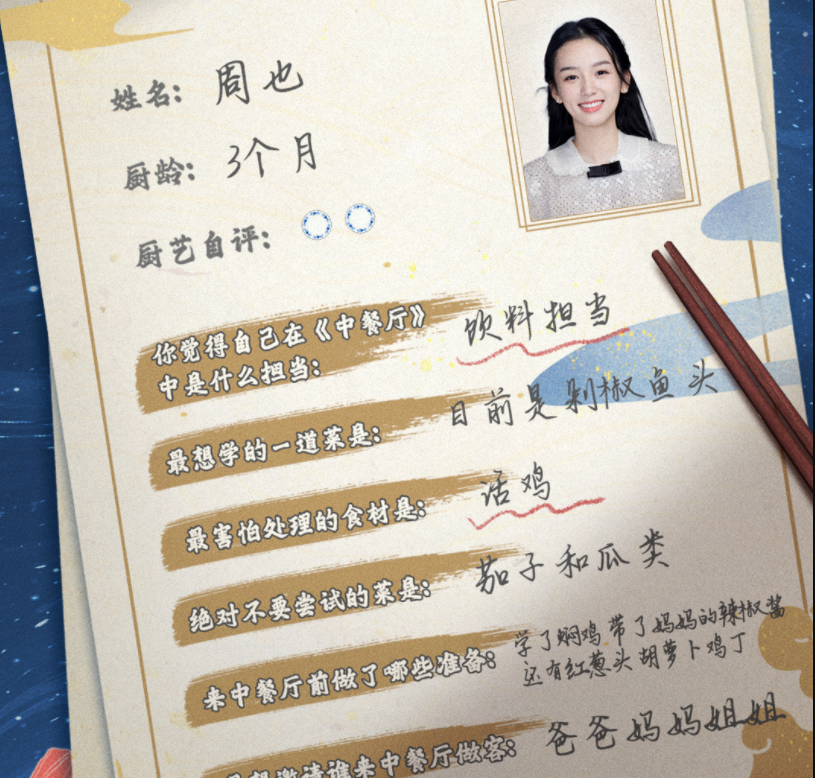 姓名: 周也
厨龄: 3个月
厨艺自评:
你觉得自己在《中餐厅》
中是什么担当: 饮料担当
最想学的一道菜是: 目前是剁椒鱼头
最害怕处理的食材是: 活鸡
绝对不要尝试的菜是: 茄子和瓜类
来中餐厅前做了哪些准备: 学了焖鸡 带了妈妈的辣椒酱
还有红葱头 胡萝卜 鸡丁
最想邀请谁来中餐厅做客: 爸爸妈妈姐姐